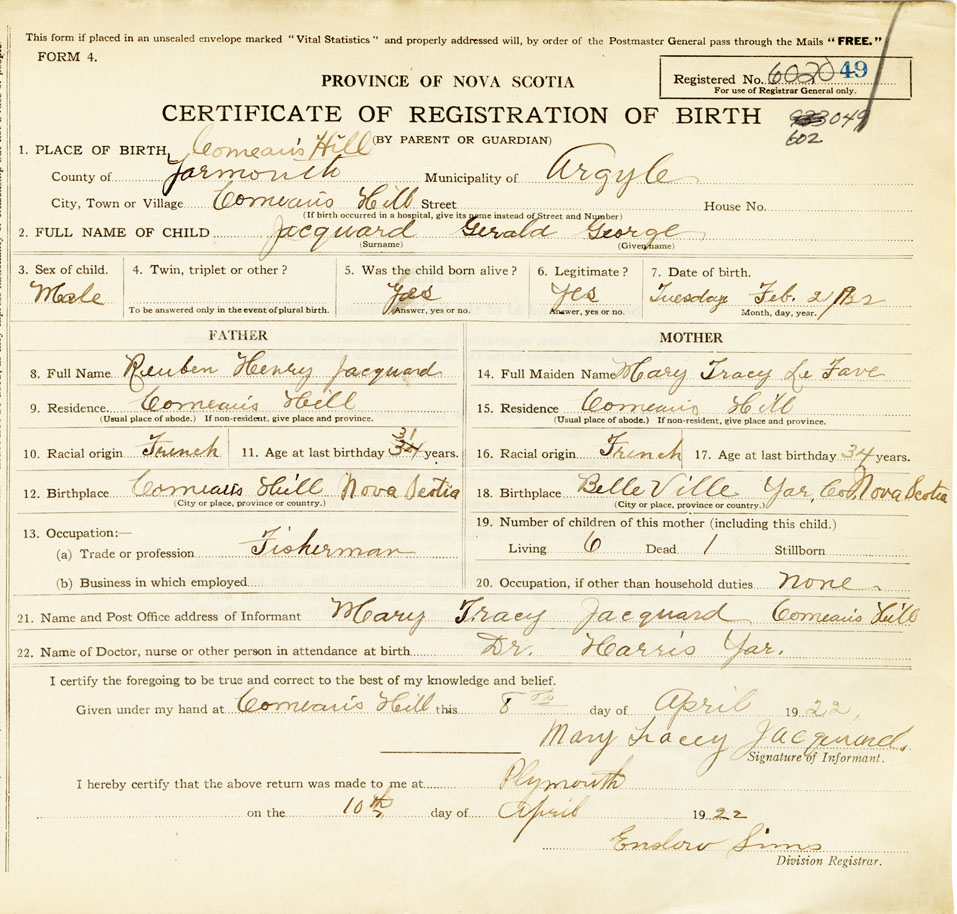 This form if placed in an unsealed envelope marked "Vital Statistics" and properly addressed will, by order of the Postmaster General pass through the Mails "FREE."
FORM 4.
PROVINCE OF NOVA SCOTIA
Registered No. 6020 49
For use of Registrar General only.
CERTIFICATE OF REGISTRATION OF BIRTH
049
602
(BY PARENT OR GUARDIAN)
1. PLACE OF BIRTH, Comeau's Hill
County of Yarmouth Municipality of Argyle
City, Town or Village Comeau's Hill Street House No.
(If birth occurred in a hospital, give its name instead of Street and Number)
2. FULL NAME OF CHILD Jacquard Gerald George
(Surname) (Given name)
3. Sex of child. 4. Twin, triplet or other? 5. Was the child born alive? 6. Legitimate? 7. Date of birth.
Male Yes Yes Tuesday Feb. 21/22
To be answered only in the event of plural birth. Answer, yes or no. Answer, yes or no. Month, day, year.
FATHER MOTHER
8. Full Name Reuben Henry Jacquard 14. Full Maiden Name Mary Tracy Le Fave
9. Residence Comeau's Hill 15. Residence Comeau's Hill
(Usual place of abode.) If non-resident, give place and province. (Usual place of abode.) If non-resident, give place and province.
10. Racial origin French 11. Age at last birthday 31 years. 16. Racial origin French 17. Age at last birthday 34 years.
12. Birthplace Comeau's Hill Nova Scotia 18. Birthplace Belle Ville Yar, Co, Nova Scotia
(City or place, province or country.) (City or place, province or country.)
19. Number of children of this mother (including this child.)
13. Occupation:—
(a) Trade or profession Fisherman Living 6 Dead 1 Stillborn
(b) Business in which employed 20. Occupation, if other than household duties none
21. Name and Post Office address of Informant Mary Tracy Jacquard Comeau's Hill
22. Name of Doctor, nurse or other person in attendance at birth Dr. Harris Yar.
I certify the foregoing to be true and correct to the best of my knowledge and belief.
Given under my hand at Comeau's Hill this 8th day of April 1922,
Mary Tracey Jacquard.
Signature of Informant.
I hereby certify that the above return was made to me at Plymouth
on the 10th day of April 1922
Enslow Sims
Division Registrar.